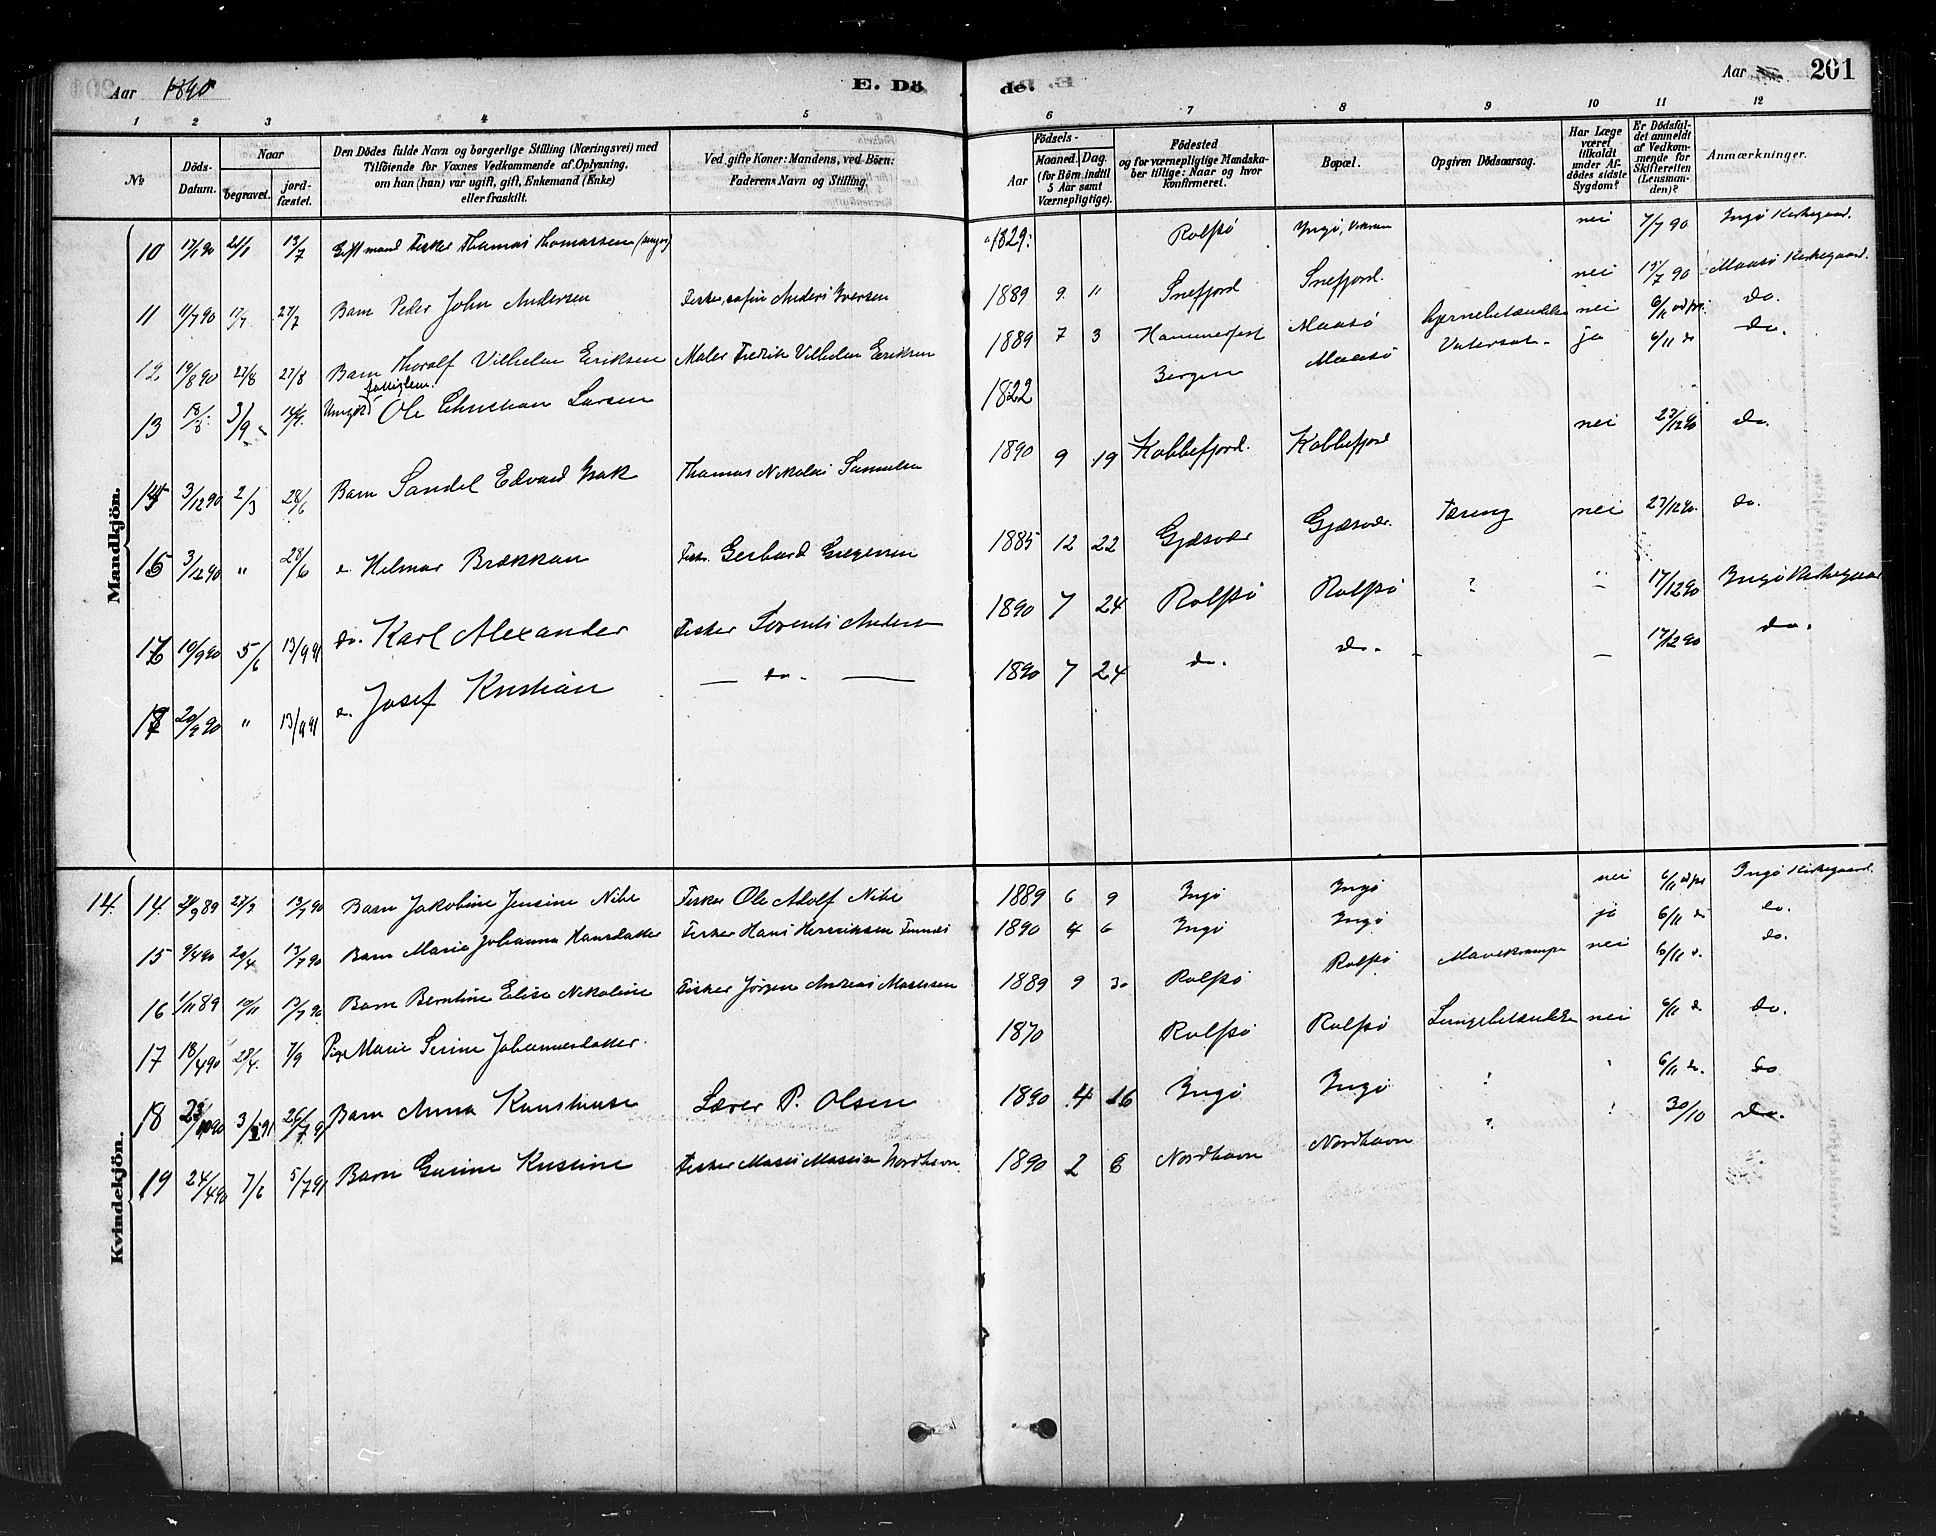 Aar 1890 E. Dö de. Aar 201
1 2 3 4 5 6 7 8 9 10 11 12
№ Döds-Datum. Naar begravet. jordfæstet. Den Dödes fulde Navn og borgerlige Stilling (Næringsvei) med Tilföiende for Voxnes Vedkommende af Oplysning, om han (hun) var ugift, gift, Enkemand (Enke) eller fraskilt. Ved gifte Koner: Mandens, ved Börn: Faderens Navn og Stilling. Födsels- Aar Maaned. Dag. (for Börn indtil 5 Aar samt Værnepligtige). Födested og for værnepligtige Mandskaber tillige: Naar og hvor konfirmeret. Bopæl. Opgiven Dödsaarsag. Har Læge været tilkaldt under Afdødes sidste Sygdom? Er Dödsfaldet anmeldt af Vedkommende for Skifteretten (Lensmanden)? Anmærkninger.
Mandkjön.
10 17/6 90 13/7 Gift mand Fisker Thomas Thomassen 1829 Rolfsö Ingö, nei 7/7 90 Ingö Kirkegaard.
11 11/7 90 17/7 27/7 Barn Peder John Andersen Anders Iversen 1889 9 11 Snefjord Snefjord. nei 15/7 90 Maasö Kirkegaard.
12 19/8 90 27/8 27/8 Barn Thoralf Vilhelm Eriksen Maler Fredrik Vilhelm Eriksen 1889 7 3 Hammerfest Maasö Hjernebetændelse nei 6/11 do.
13 18/8 3/9 14/9 Ole Christian Larsen 1822 Bergen Maasö Vatersot ja 6/11 do.
14 3/12 90 2/3 28/6 Barn Sandel Edvard Isak Thomas Nikolai Samuelsen 1890 9 19 Kobbefjord. Kobbefjord nei 23/12 90 do.
15 3/12 90 " 28/6 Hilmar Brækkan Fisk. Gerhard Gregersen 1885 12 22 Gjæsvær Gjæsvær. Tæring nei 27/12 90. do.
16 10/9 90 5/6 13/9 91 do. Karl Alexander Fisker Sorents Anders 1890 7 24 Rolfsö Rolfsö ? 17/12 90 Ingö Kirkegaard
17 20/9 90 " 13/9 91 Josef Kristian do. 1890 7 24 do. do. 17/12 90 do.
Kvindekjön.
14. 14. 89 27/9 13/7 90 Barn Jakobine Jensine Nibe Fisker Ole Adolf Nibe 1889 6 9 Ingö Ingö nei 6/11 Ingö Kirkegaard.
15 9/4 90 20/4 13/7 90 Barn Marie Johanna Hansdatter Fisker Hans Henriksen 1890 4 6 Ingö Ingö ja 6/11 do.
16 1/11 89 10/11 13/7 90 Barn Berntine Elise Nikoline Fisker Jörgen Andreas 1889 9 30 Rolfsö Rolfsö Mavekrampe nei 6/11 do.
17 18/4 90 28/4. 7/9 Pige Marie Serine Johannesdatter. 1870 Rolfsö Rolfsö Lungebetændelse nei 6/11 do.
18 3/ 91 Barn Anna Læрer P. Olsen 1890 4 16 Ingö Ingö ? 6/11 do. do
19 24/4 90 7/6 5/7 91 Barn Gusine Kristine Fisker Nordhavn 1890 2 8 Nordhavn Nordhavn ? 30/10 do.